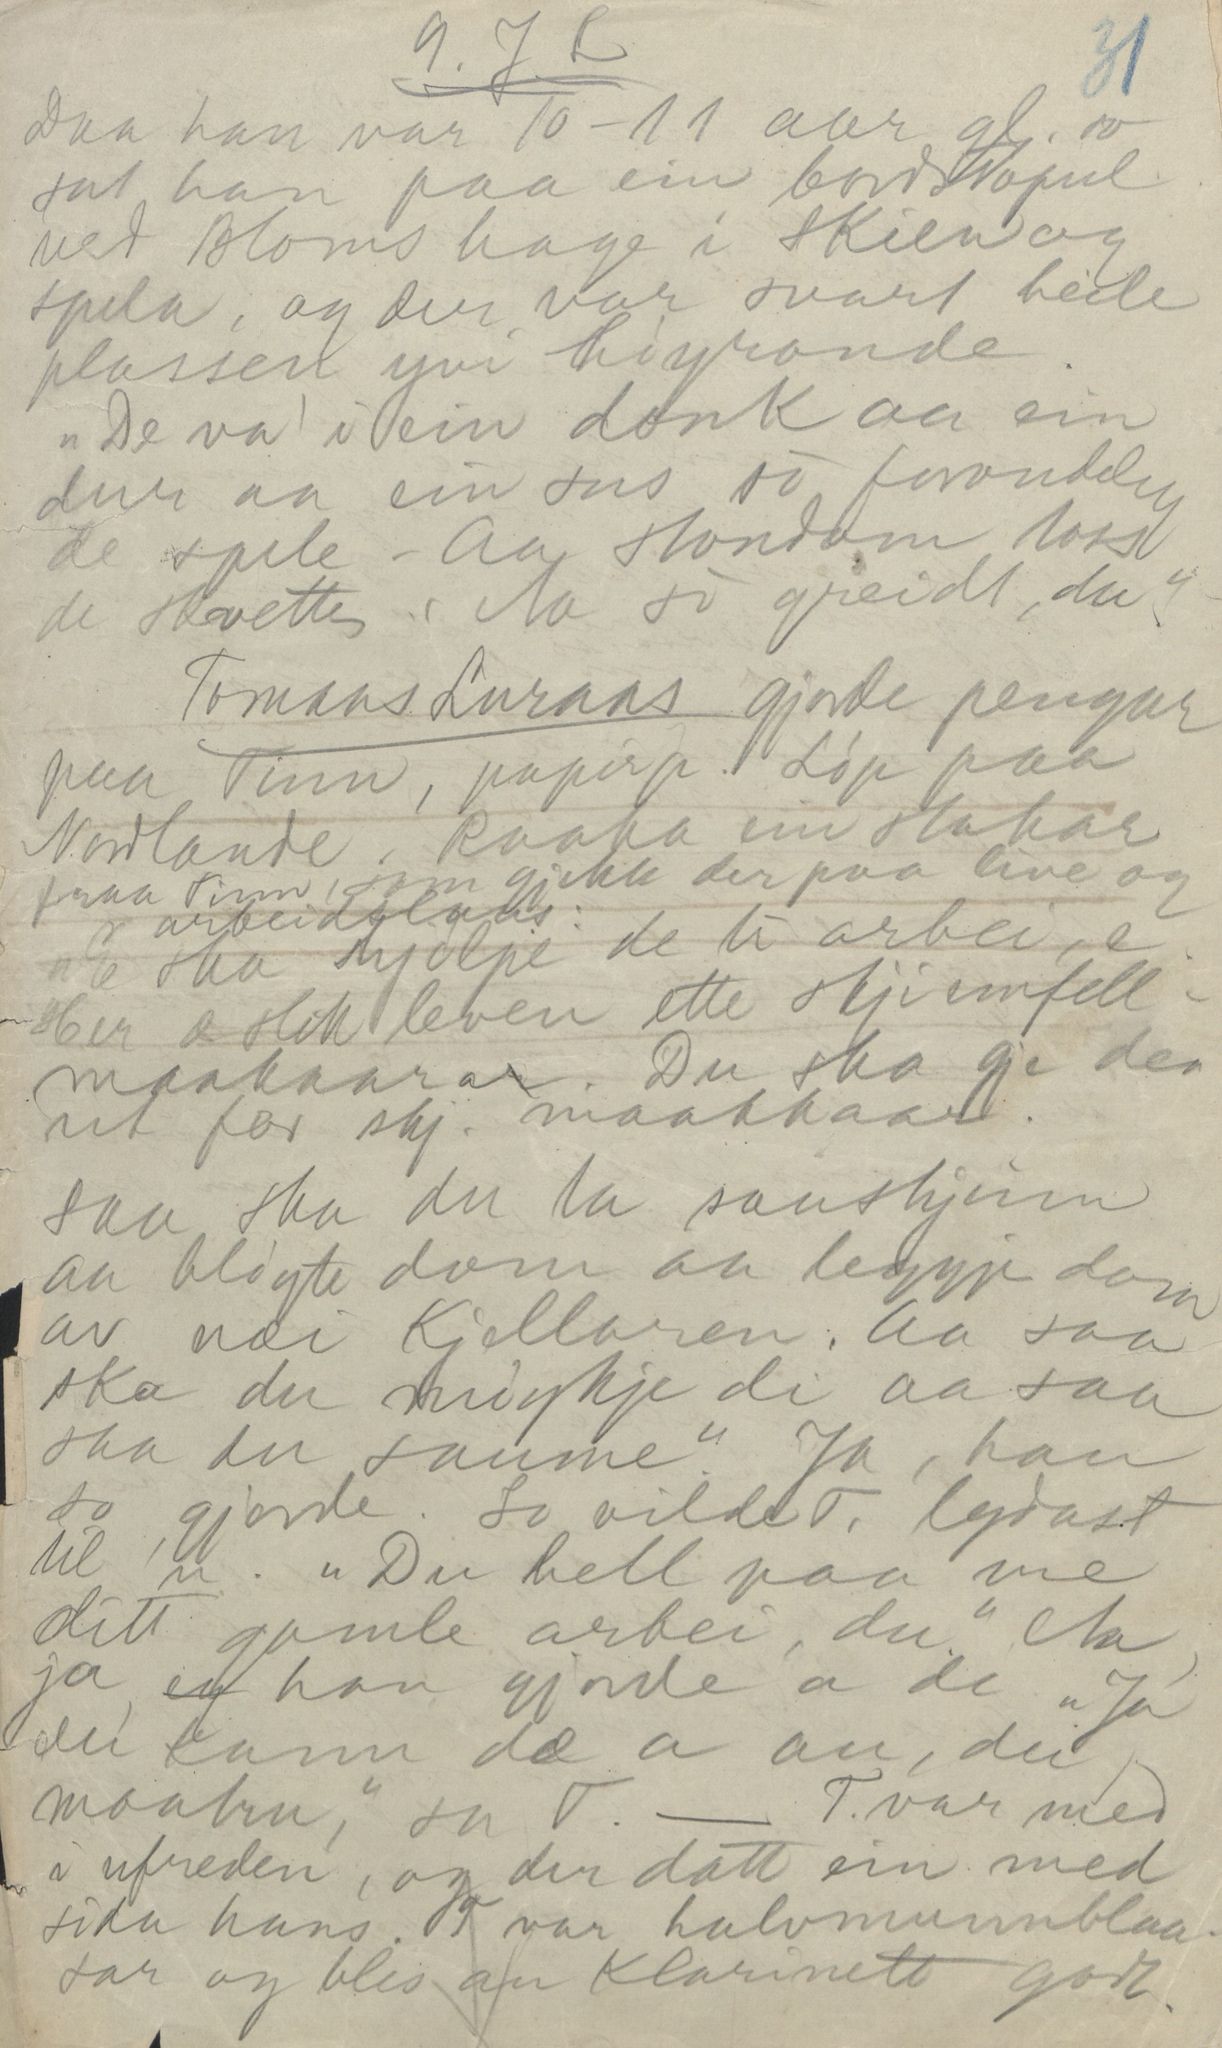 9. J. L
31
Daa han var 10-11 aar gl. so
sat han paa ein bordstapul
ved Bloms hage i Skien og
spela, og der var svart heile
plassen yvi höyrande.
"De va' i ein donk aa ein
dur aa ein sus so forondeleg
de spele - Aa stondom toss
de skvette. Aa so greidt, du"
Tomaas Luraas gjorde pengar
paa Tinn, papirp. Löp paa
Nordlande. Raaka ein stakar
fraa Tinn, som gjekk der paa live og
arbeidslaus:
"E ska hjölpe de ti arbei, e.
Her æ slik leven ette skjinnfell-
maakaarar. Du ska gje deg
ut for skj. maakkaar.
Saa ska du ta sauskjinn
aa blöyte dom aa leggje dom
av nei Kjellaren. Aa saa
ska du möykje di aa saa
ska du saume." Ja, han
so gjorde. So vilde T. lydast
til 'n. "Du hell paa me
ditt gamle arbei, du." Aa
ja, han gjorde a de "Ja
du kann dæ a au, du
maatru," sa T. — T. var med
i ufreden, og der datt ein med
sida hans. T var halvmunnblaa-
sar og bles au Klarinett godt.